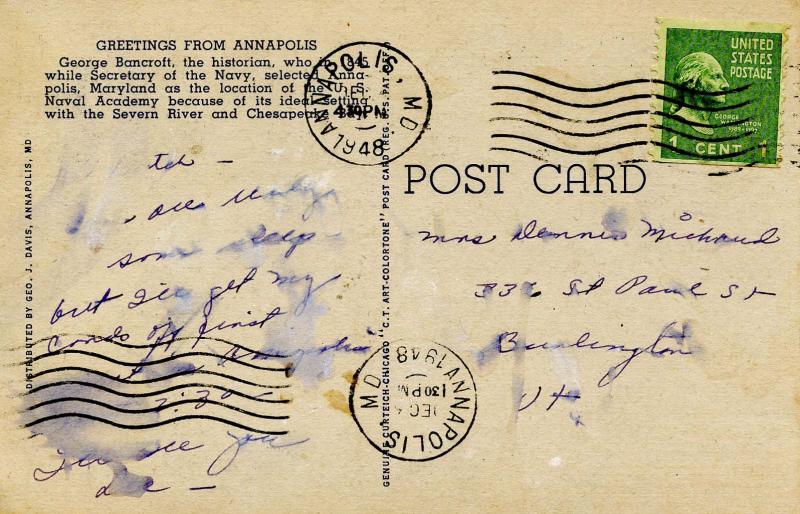 GREETINGS FROM ANNAPOLIS
George Bancroft, the historian, who in 1845
while Secretary of the Navy, selected Anna-
polis, Maryland as the location of the U. S.
Naval Academy because of its ideal setting
with the Severn River and Chesapeake Bay.
DISTRIBUTED BY GEO. J. DAVIS, ANNAPOLIS, MD
some sleep -
but I'll get my
cards off first
7:30 -
I'll see you
GENUINE CURTEICH-CHICAGO "C.T. ART-COLORTONE" POST CARD (REG. U.S. PAT. OFF.)
ANNAPOLIS, MD.
430PM
1948
ANNAPOLIS MD.
DEC
130PM
1948
UNITED
STATES
POSTAGE
GEORGE
WASHINGTON
1789-1797
1 CENT 1
POST CARD
Mrs Dennis Michaud
336 St Paul St
Burlington
Vt